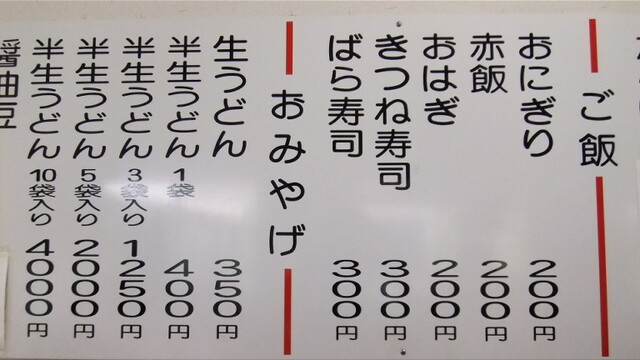 ご飯
おにぎり 200円
赤飯 200円
おはぎ 200円
きつね寿司 300円
ばら寿司 300円
おみやげ
生うどん 350円
半生うどん 1袋 400円
半生うどん 3袋入り 1250円
半生うどん 5袋入り 2000円
半生うどん 10袋入り 4000円
醤油豆